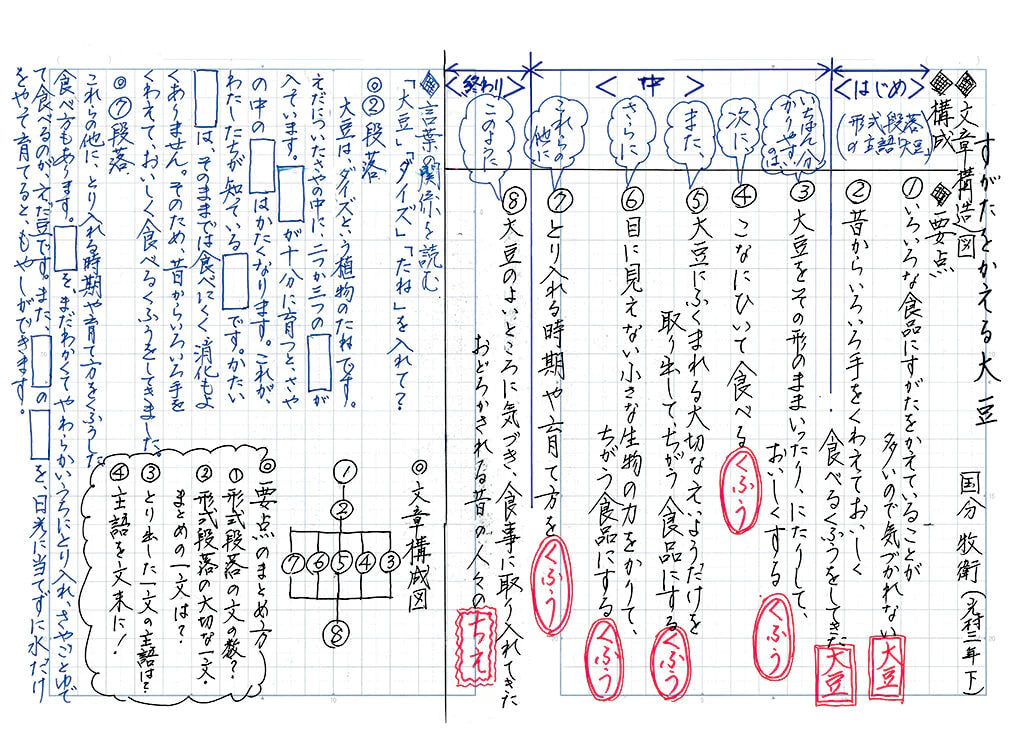 すがたをかえる大豆
国分 牧衛(光村三年下)
文章構造図
構成
要点
<はじめ>
(形式段落の主語大豆)
①いろいろな食品にすがたをかえていることが
多いので気づかれない大豆
②昔からいろいろ手をくわえておいしく
食べるくふうをしてきた大豆
<中>
いちばん分かりやすいのは、
③大豆をその形のままいったり、にたりして、
おいしくするくふう
次に、
④こなにひいて食べるくふう
また、
⑤大豆にふくまれる大切なえいようだけを
取り出して、ちがう食品にするくふう
さらに
⑥目に見えない小さな生物の力をかりて、
ちがう食品にするくふう
これらの他に
⑦とり入れる時期や育て方をくふう
<終わり>
このように
⑧大豆のよいところに気づき、食事に取り入れてきた
おどろかされる昔の人々のちえ
◎文章構成図
①
②
⑦⑥⑤④③
⑧
◎要点のまとめ方
①形式段落の文の数?
②形式段落の大切な一文・
まとめの一文は?
③とり出した一文の主語は?
④主語を文末に!
言葉の関係を読む
「大豆」「ダイズ」「たね」を入れて?
◎②段落
大豆は、ダイズという植物のたねです。
えだについたさやの中に、二つか三つの□が
入っています。□が十分に育つと、さや
の中の□はかたくなります。これが、
わたしたちが知っている□です。かたい
□は、そのままでは食べにくく、消化もよ
くありません。そのため、昔からいろいろ手を
くわえて、おいしく食べるくふうをしてきました。
◎⑦段落
これらの他に、とり入れる時期や育て方をくふうした
食べ方もあります。□を、まだわかくてやわらかいうちにとり入れ、さやごとゆで
て食べるのが、えだ豆です。また、□の□を、日光に当てずに水だけ
をやって育てると、もやしができます。